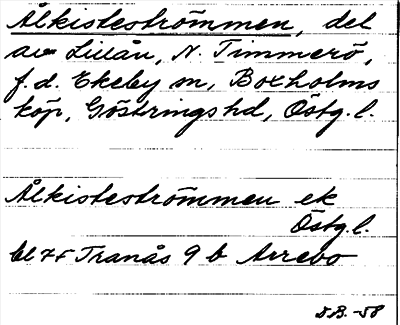 Ålkisteströmmen, del
av Lillån, N. Timmerö,
f.d. Ekeby sn, Boxholms
köp, Göstrings hd, Östg.l.
Ålkisteströmmen ek
Östg.l.
bl 7F Tranås 9 b Arrebo
D.B. -58